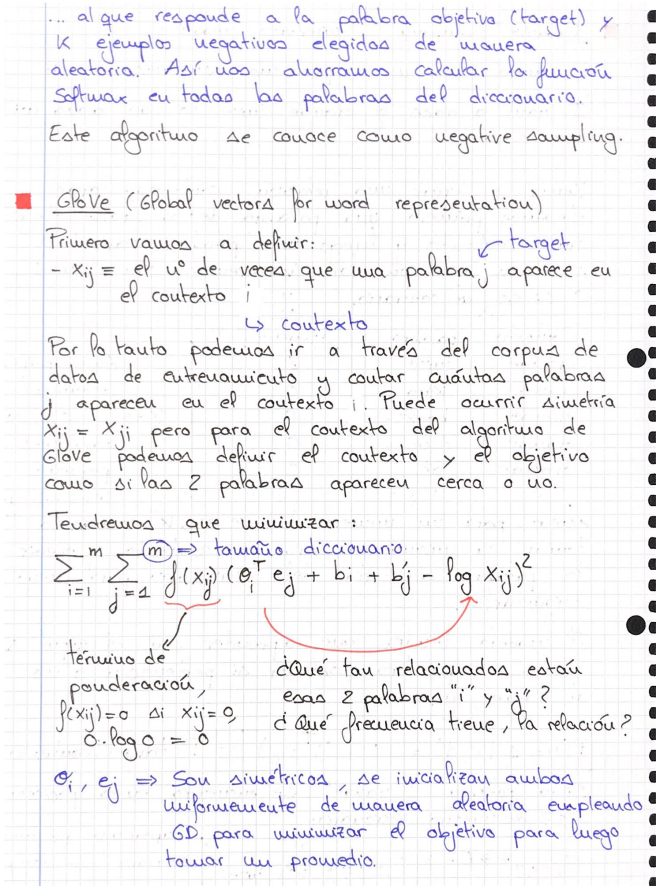 ... al que responde a la palabra objetivo (target) y
K ejemplos negativos elegidos de manera
aleatoria. Así nos ahorramos calcular la función
Softmax en todas las palabras del diccionario.
Este algoritmo se conoce como negative sampling.
GloVe (Global vectors for word representation)
Primero vamos a definir:
target
- Xij ≡ el nº de veces que una palabra j aparece en
el contexto i
↳ contexto
Por lo tanto podemos ir a través del corpus de
datos de entrenamiento y contar cuántas palabras
j aparecen en el contexto i. Puede ocurrir simetría
Xij = Xji pero para el contexto del algoritmo de
Glove podemos definir el contexto y el objetivo
como si las 2 palabras aparecen cerca o no.
Tendremos que minimizar:
m m ⇒ tamaño diccionario
∑ ∑ f(Xij) (θiᵀ ej + bi + b'j - log Xij)²
i=1 j=1
término de
ponderación,
f(Xij)=0 si Xij=0,
0·log0 = 0
¿Qué tan relacionados están
esas 2 palabras "i" y "j"?
¿Qué frecuencia tiene, la relación?
θi, ej ⇒ Son simétricos, se inicializan ambos
uniformemente de manera aleatoria empleando
GD. para minimizar el objetivo para luego
tomar un promedio.